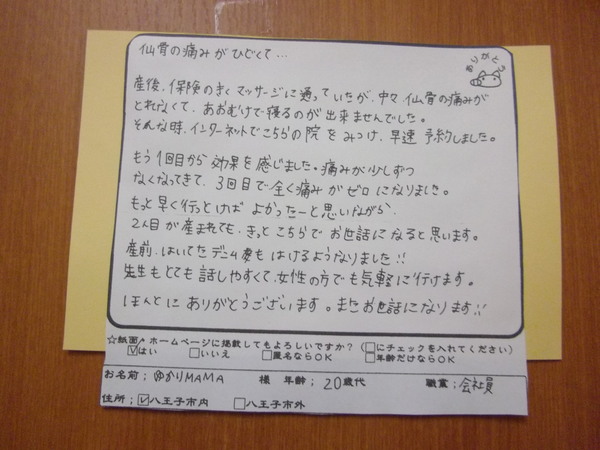 仙骨の痛みがひどくて…
ありがとう
産後、保険のきくマッサージに通っていたが、中々、仙骨の痛みが
とれなくて、あおむけで寝るのが出来ませんでした。
そんな時、インターネットでこちらの院をみつけ、早速予約しました。
もう1回目から効果を感じました。痛みが少しずつ
なくなってきて、3回目で全く痛みがゼロになりました。
もっと早く行っとけばよかったーと思いながら、
2人目が産まれても、きっとこちらでお世話になると思います。
産前、はいてたデニムもはけるようなりました!!
先生もとても話しやすくて、女性の方でも気軽に行けます。
ほんとにありがとうございます。またお世話になります!!
☆紙面・ホームページに掲載してもよろしいですか?(□にチェックを入れてください)
☑はい □いいえ □匿名ならOK □年齢だけならOK
お名前;ゆかりMAMA 様 年齢;20歳代 職業;会社員
住所;☑八王子市内 □八王子市外